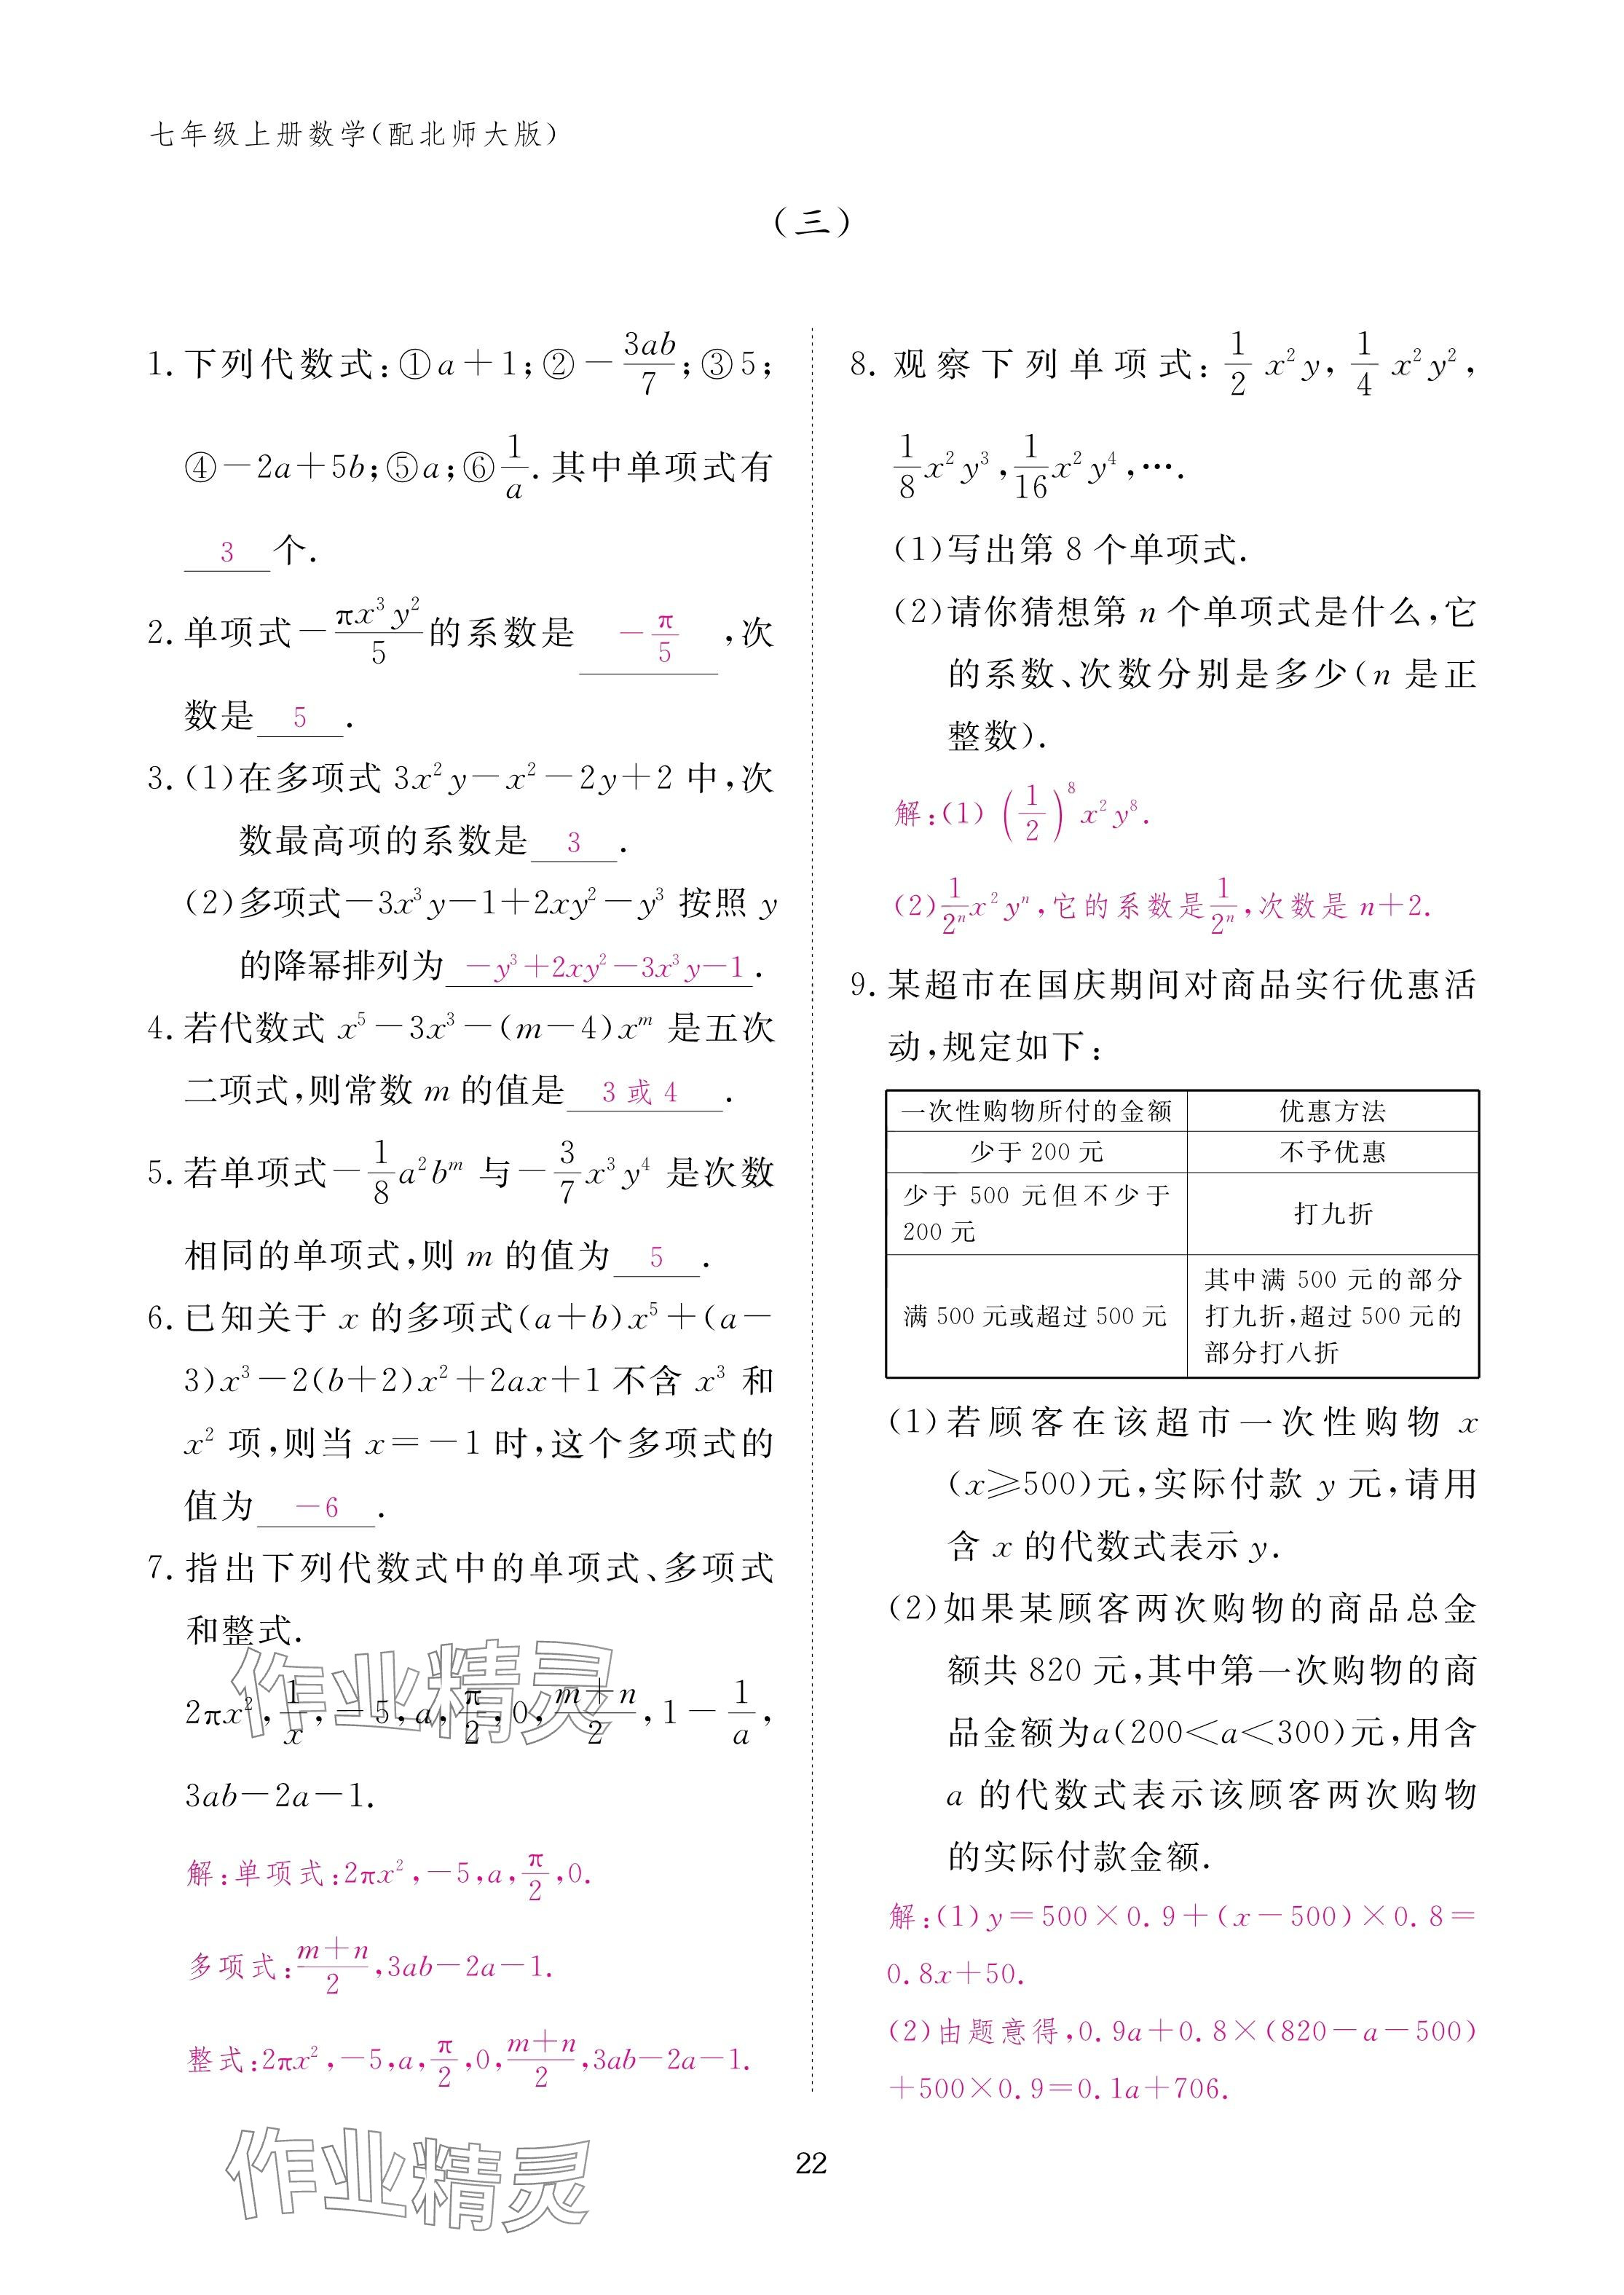 七年级上册数学(配北师大版)
(三)
1. 下列代数式:①a+1;②-3ab/7;③5;
④-2a+5b;⑤a;⑥1/a.其中单项式有
3 个.
2. 单项式-πx³y²/5的系数是 -π/5 ,次
数是 5 .
3. (1)在多项式 3x²y-x²-2y+2 中,次
数最高项的系数是 3 .
(2)多项式-3x³y-1+2xy²-y³ 按照 y
的降幂排列为 -y³+2xy²-3x³y-1 .
4. 若代数式 x⁵-3x³-(m-4)xᵐ 是五次
二项式,则常数 m 的值是 3 或 4 .
5. 若单项式-1/8a²bᵐ 与-3/7x³y⁴ 是次数
相同的单项式,则 m 的值为 5 .
6. 已知关于 x 的多项式(a+b)x⁵+(a-
3)x³-2(b+2)x²+2ax+1 不含 x³ 和
x² 项,则当 x=-1 时,这个多项式的
值为 -6 .
7. 指出下列代数式中的单项式、多项式
和整式.
2πx²,1/x,-5,a,π/2,0,(m+n)/2,1-1/a,
3ab-2a-1.
解:单项式:2πx²,-5,a,π/2,0.
多项式:(m+n)/2,3ab-2a-1.
整式:2πx²,-5,a,π/2,0,(m+n)/2,3ab-2a-1.
8. 观察下列单项式:1/2 x²y,1/4 x²y²,
1/8x²y³,1/16x²y⁴,….
(1)写出第 8 个单项式.
(2)请你猜想第 n 个单项式是什么,它
的系数、次数分别是多少(n 是正
整数).
解:(1) (1/2)⁸x²y⁸.
(2)1/2ⁿx²yⁿ,它的系数是1/2ⁿ,次数是 n+2.
9. 某超市在国庆期间对商品实行优惠活
动,规定如下:
一次性购物所付的金额 优惠方法
少于 200 元 不予优惠
少于 500 元但不少于
200 元
打九折
满 500 元或超过 500 元
其中满 500 元的部分
打九折,超过 500 元的
部分打八折
(1)若顾客在该超市一次性购物 x
(x⩾500)元,实际付款 y 元,请用
含 x 的代数式表示 y.
(2)如果某顾客两次购物的商品总金
额共 820 元,其中第一次购物的商
品金额为a(200<a<300)元,用含
a 的代数式表示该顾客两次购物
的实际付款金额.
解:(1)y=500×0.9+(x-500)×0.8=
0.8x+50.
(2)由题意得,0.9a+0.8×(820-a-500)
+500×0.9=0.1a+706.
22
作业精灵
作业精灵